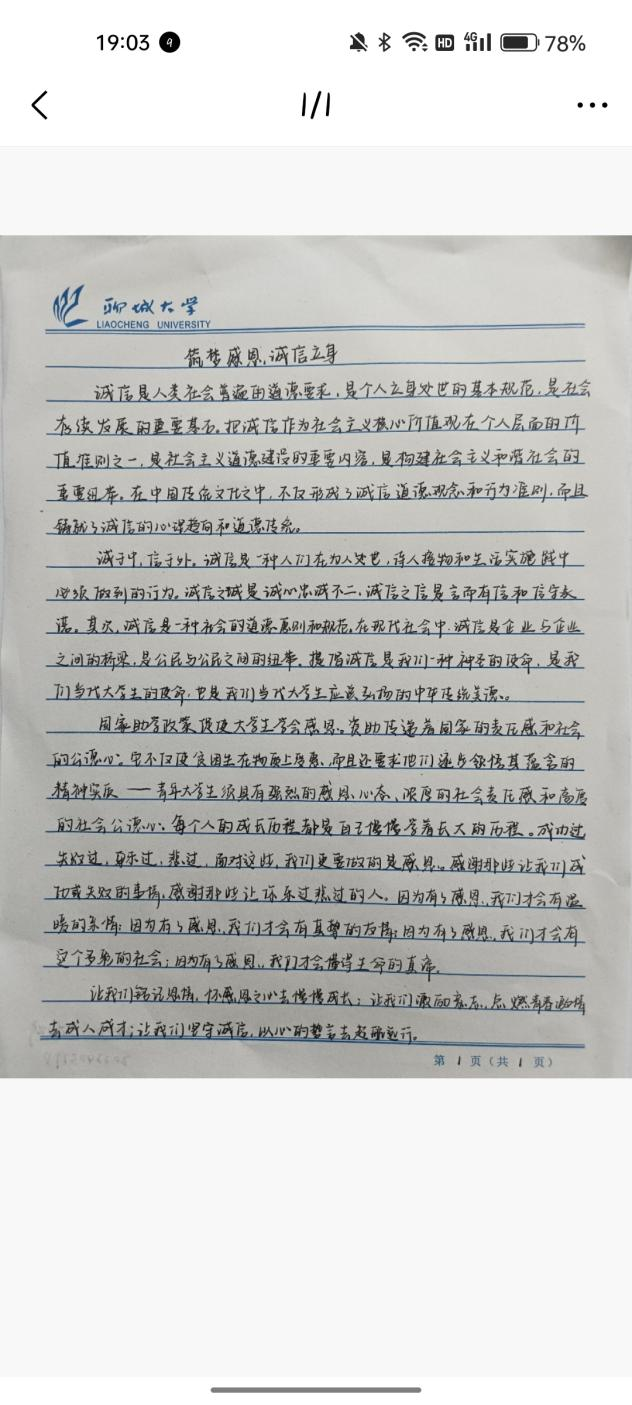 19:03
HD 4G 78%
1/1
聊城大学
LIAOCHENG UNIVERSITY
筑梦感恩,诚信立身
诚信是人类社会普遍的道德要求,是个人立身处世的基本规范,是社会
存续发展的重要基石。把诚信作为社会主义核心价值观在个人层面的价
值准则之一,是社会主义道德建设的重要内容,是构建社会主义和谐社会的
重要纽带。在中国传统文化之中,不仅形成了诚信道德观念和行为准则,而且
铸就了诚信的心理趋向和道德传统。
诚于中,信于外。诚信是一种人们在为人处世,待人接物和生活实施践中
必须做到的行为。诚信之诚是诚心忠诚不二,诚信之信是言而有信和信守承
诺。其次,诚信是一种社会的道德原则和规范,在现代社会中,诚信是企业与企业
之间的桥梁,是公民与公民之间的纽带。提倡诚信是我们一种神圣的使命,是我
们当代大学生的使命,也是我们当代大学生应该弘扬的中华传统美德。
国家助学政策促使大学生学会感恩。资助传递着国家的责任感和社会
的公德心。它不仅使贫困生在物质上受惠,而且还要求他们逐步领悟其蕴含的
精神实质——青年大学生须具有强烈的感恩心态、浓厚的社会责任感和高度
的社会公德心。每个人的成长历程都是自己慢慢学着长大的历程。成功过
失败过,欢乐过,悲过,面对这些,我们更要做的是感恩。感谢那些让我们成
功或失败的事情,感谢那些让你乐过悲过的人。因为有了感恩,我们才会有温
暖的亲情;因为有了感恩,我们才会有真挚的友情;因为有了感恩,我们才会有
这个多彩的社会;因为有了感恩,我们才会懂得生命的真谛。
让我们铭记恩情,怀感恩之心去慢慢成长;让我们激励意志,点燃青春激情
去成人成才;让我们坚守诚信,以心的誓言去起航远行。
第 1 页(共 1 页)